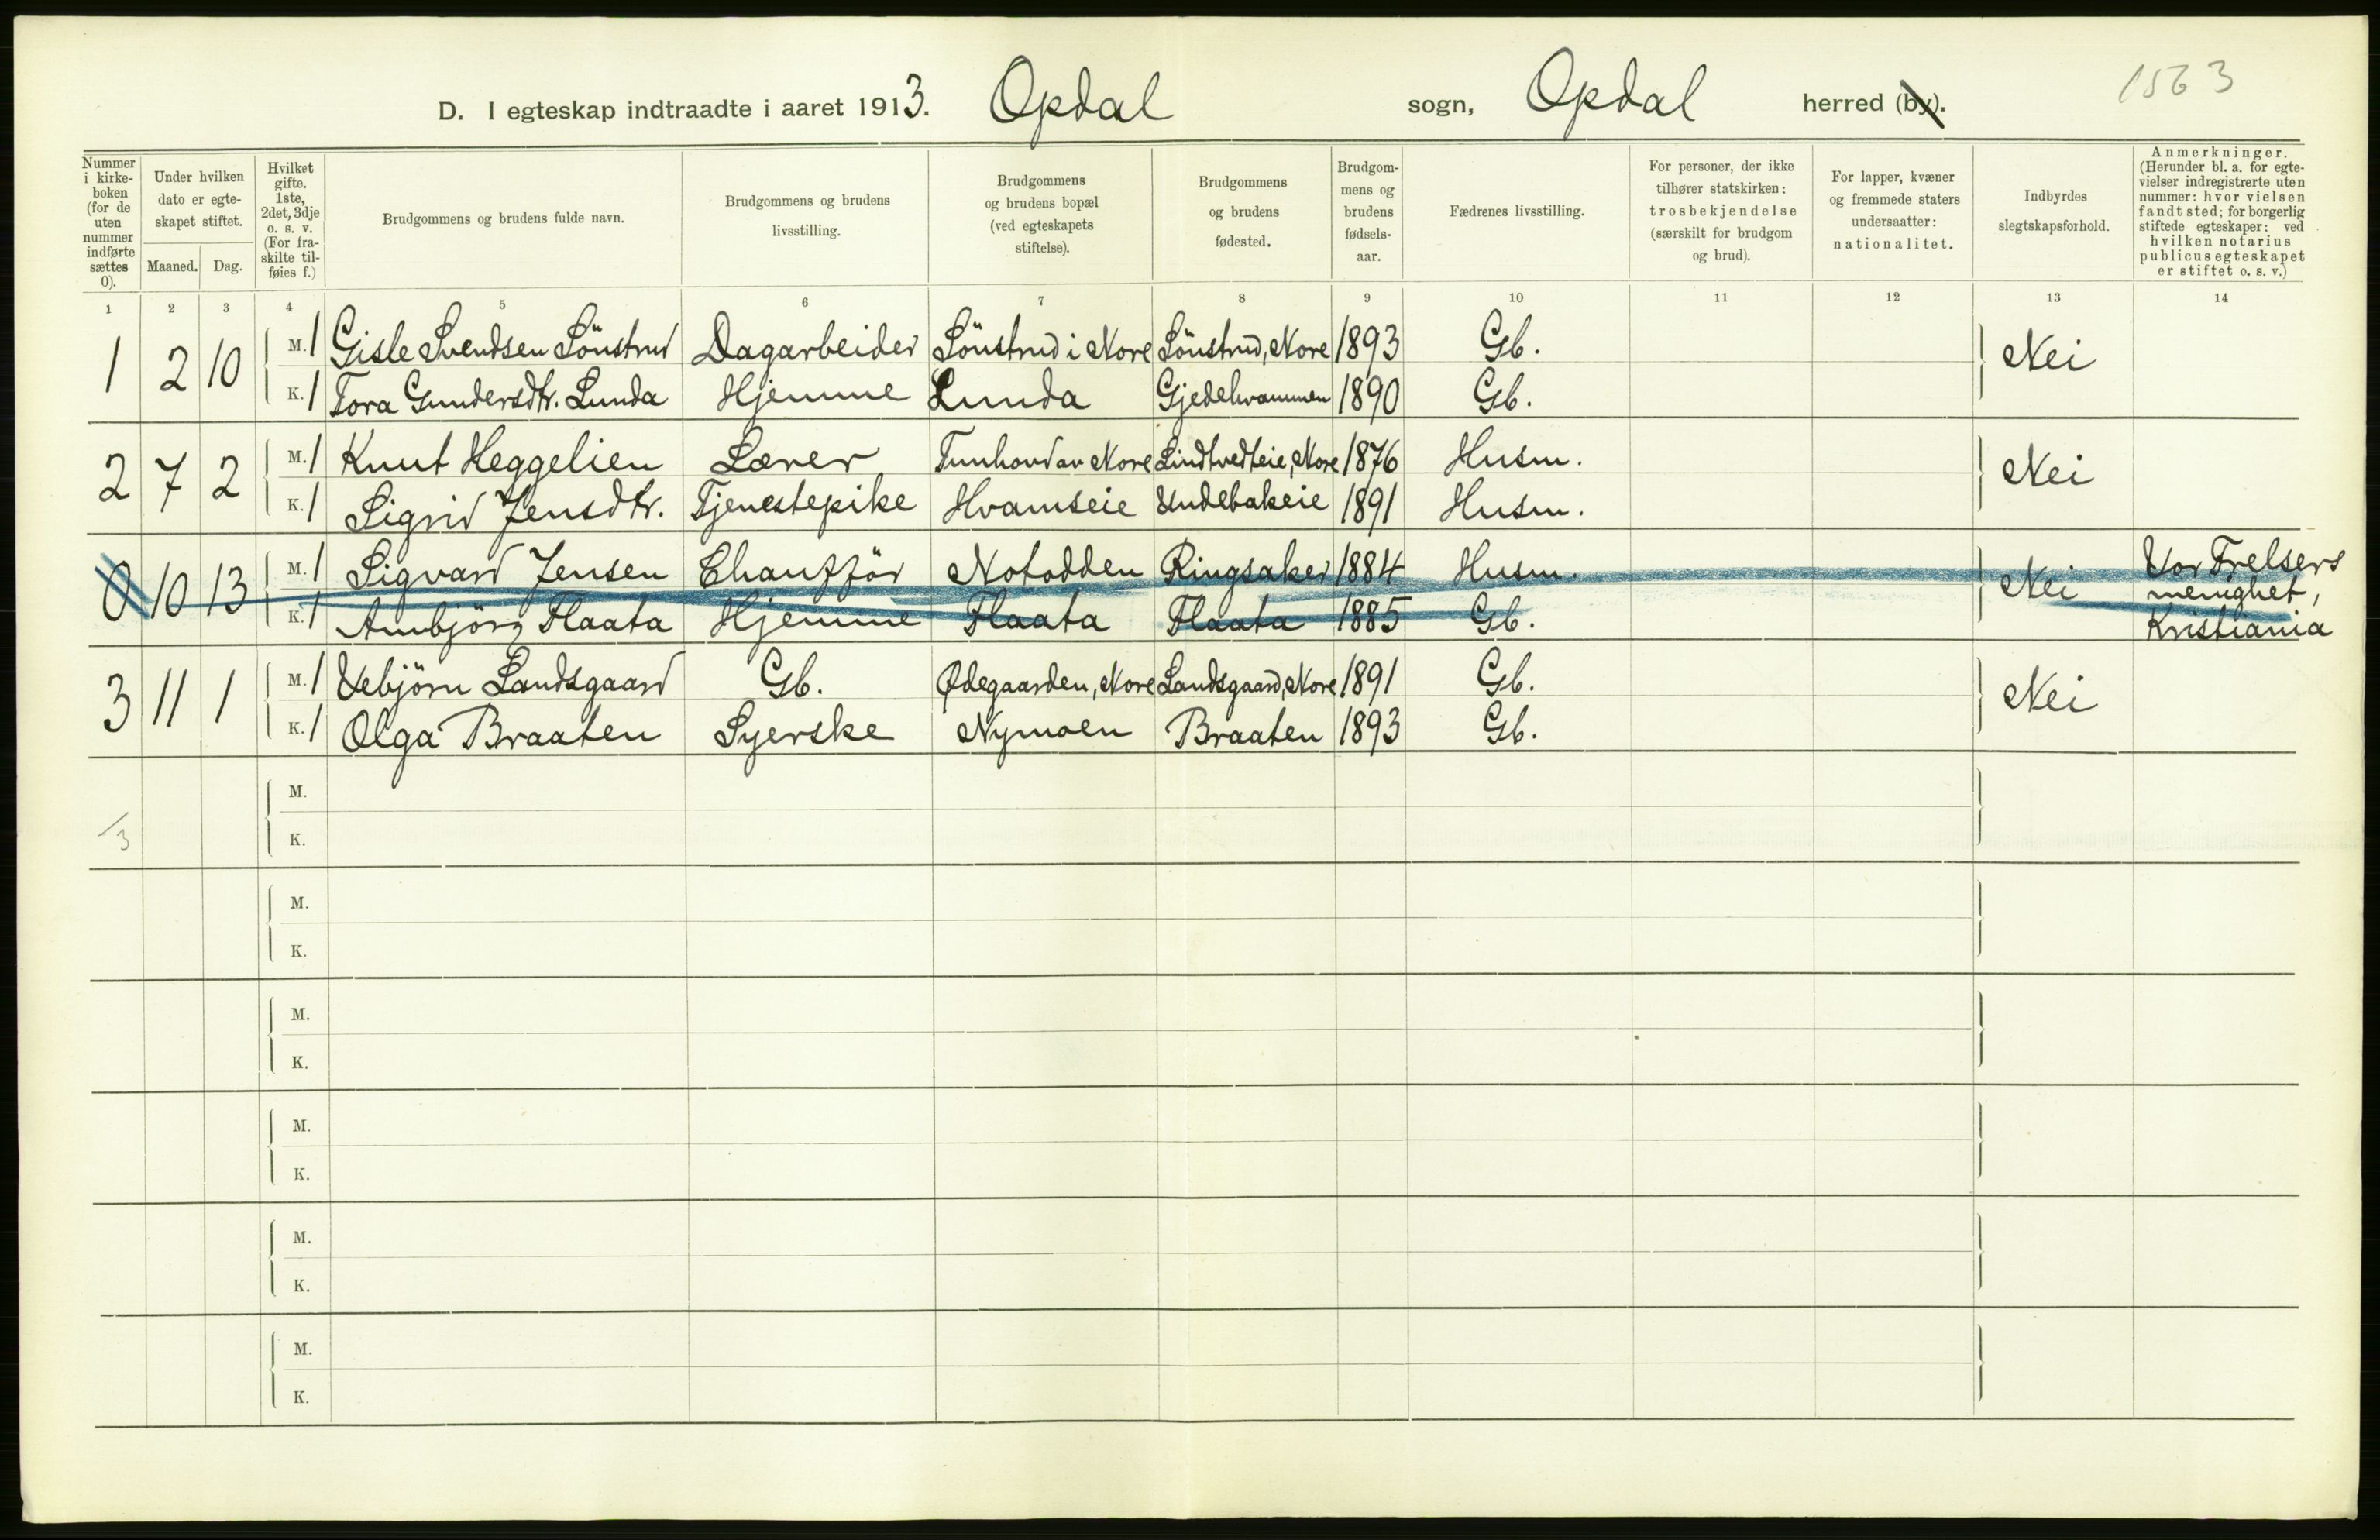 1563
D. I egteskap indtraadte i aaret 1913. Opdal sogn, Opdal herred (by).
Nummer i kirkeboken (for de uten nummer indførte sættes 0).
Under hvilken dato er egteskapet stiftet.
Maaned. Dag.
Hvilket gifte. 1ste, 2det, 3dje o. s. v. (For fraskilte tilføies f.)
Brudgommens og brudens fulde navn.
Brudgommens og brudens livsstilling.
Brudgommens og brudens bopæl (ved egteskapets stiftelse).
Brudgommens og brudens fødested.
Brudgommens og brudens fødselsaar.
Fædrenes livsstilling.
For personer, der ikke tilhører statskirken: trosbekjendelse (særskilt for brudgom og brud).
For lapper, kvæner og fremmede staters undersaatter: nationalitet.
Indbyrdes slegtskapsforhold.
Anmerkninger. (Herunder bl. a. for egtevielser indregistrerte uten nummer: hvor vielsen fandt sted; for borgerlig stiftede egteskaper: ved hvilken notarius publicus egteskapet er stiftet o. s. v.)
1 2 3 4 5 6 7 8 9 10 11 12 13 14
1 2 10 M. 1 Gisle Svendsen Lönstrud Dagarbeider Lönstrud i Nore Lönstrud, Nore 1893 Gb. Nei
K. 1 Tora Gundersdtr. Lunda Hjemme Lunda Gjedehvammen 1890 Gb.
2 7 2 M. 1 Knut Heggelien Lærer Tunhovd av Nore Lindtvedteie, Nore 1876 Husm. Nei
K. 1 Sigrid Jensdtr. Tjenestepike Hvamseie Undebakeie 1891 Husm.
0 10 13 M. 1 Sigvard Jensen Chaufför Notodden Ringsaker 1884 Husm. Nei Vor Frelsers menighet, Kristiania
K. 1 Ambjörg Flaata Hjemme Flaata Flaata 1885 Gb.
3 11 1 M. 1 Vebjörn Landsgaard Gb. Ødegaarden, Nore Landsgaard, Nore 1891 Gb. Nei
K. 1 Olga Braaten Syerske Nymoen Braaten 1893 Gb.
M.
/3 K.
M.
K.
M.
K.
M.
K.
M.
K.
M.
K.